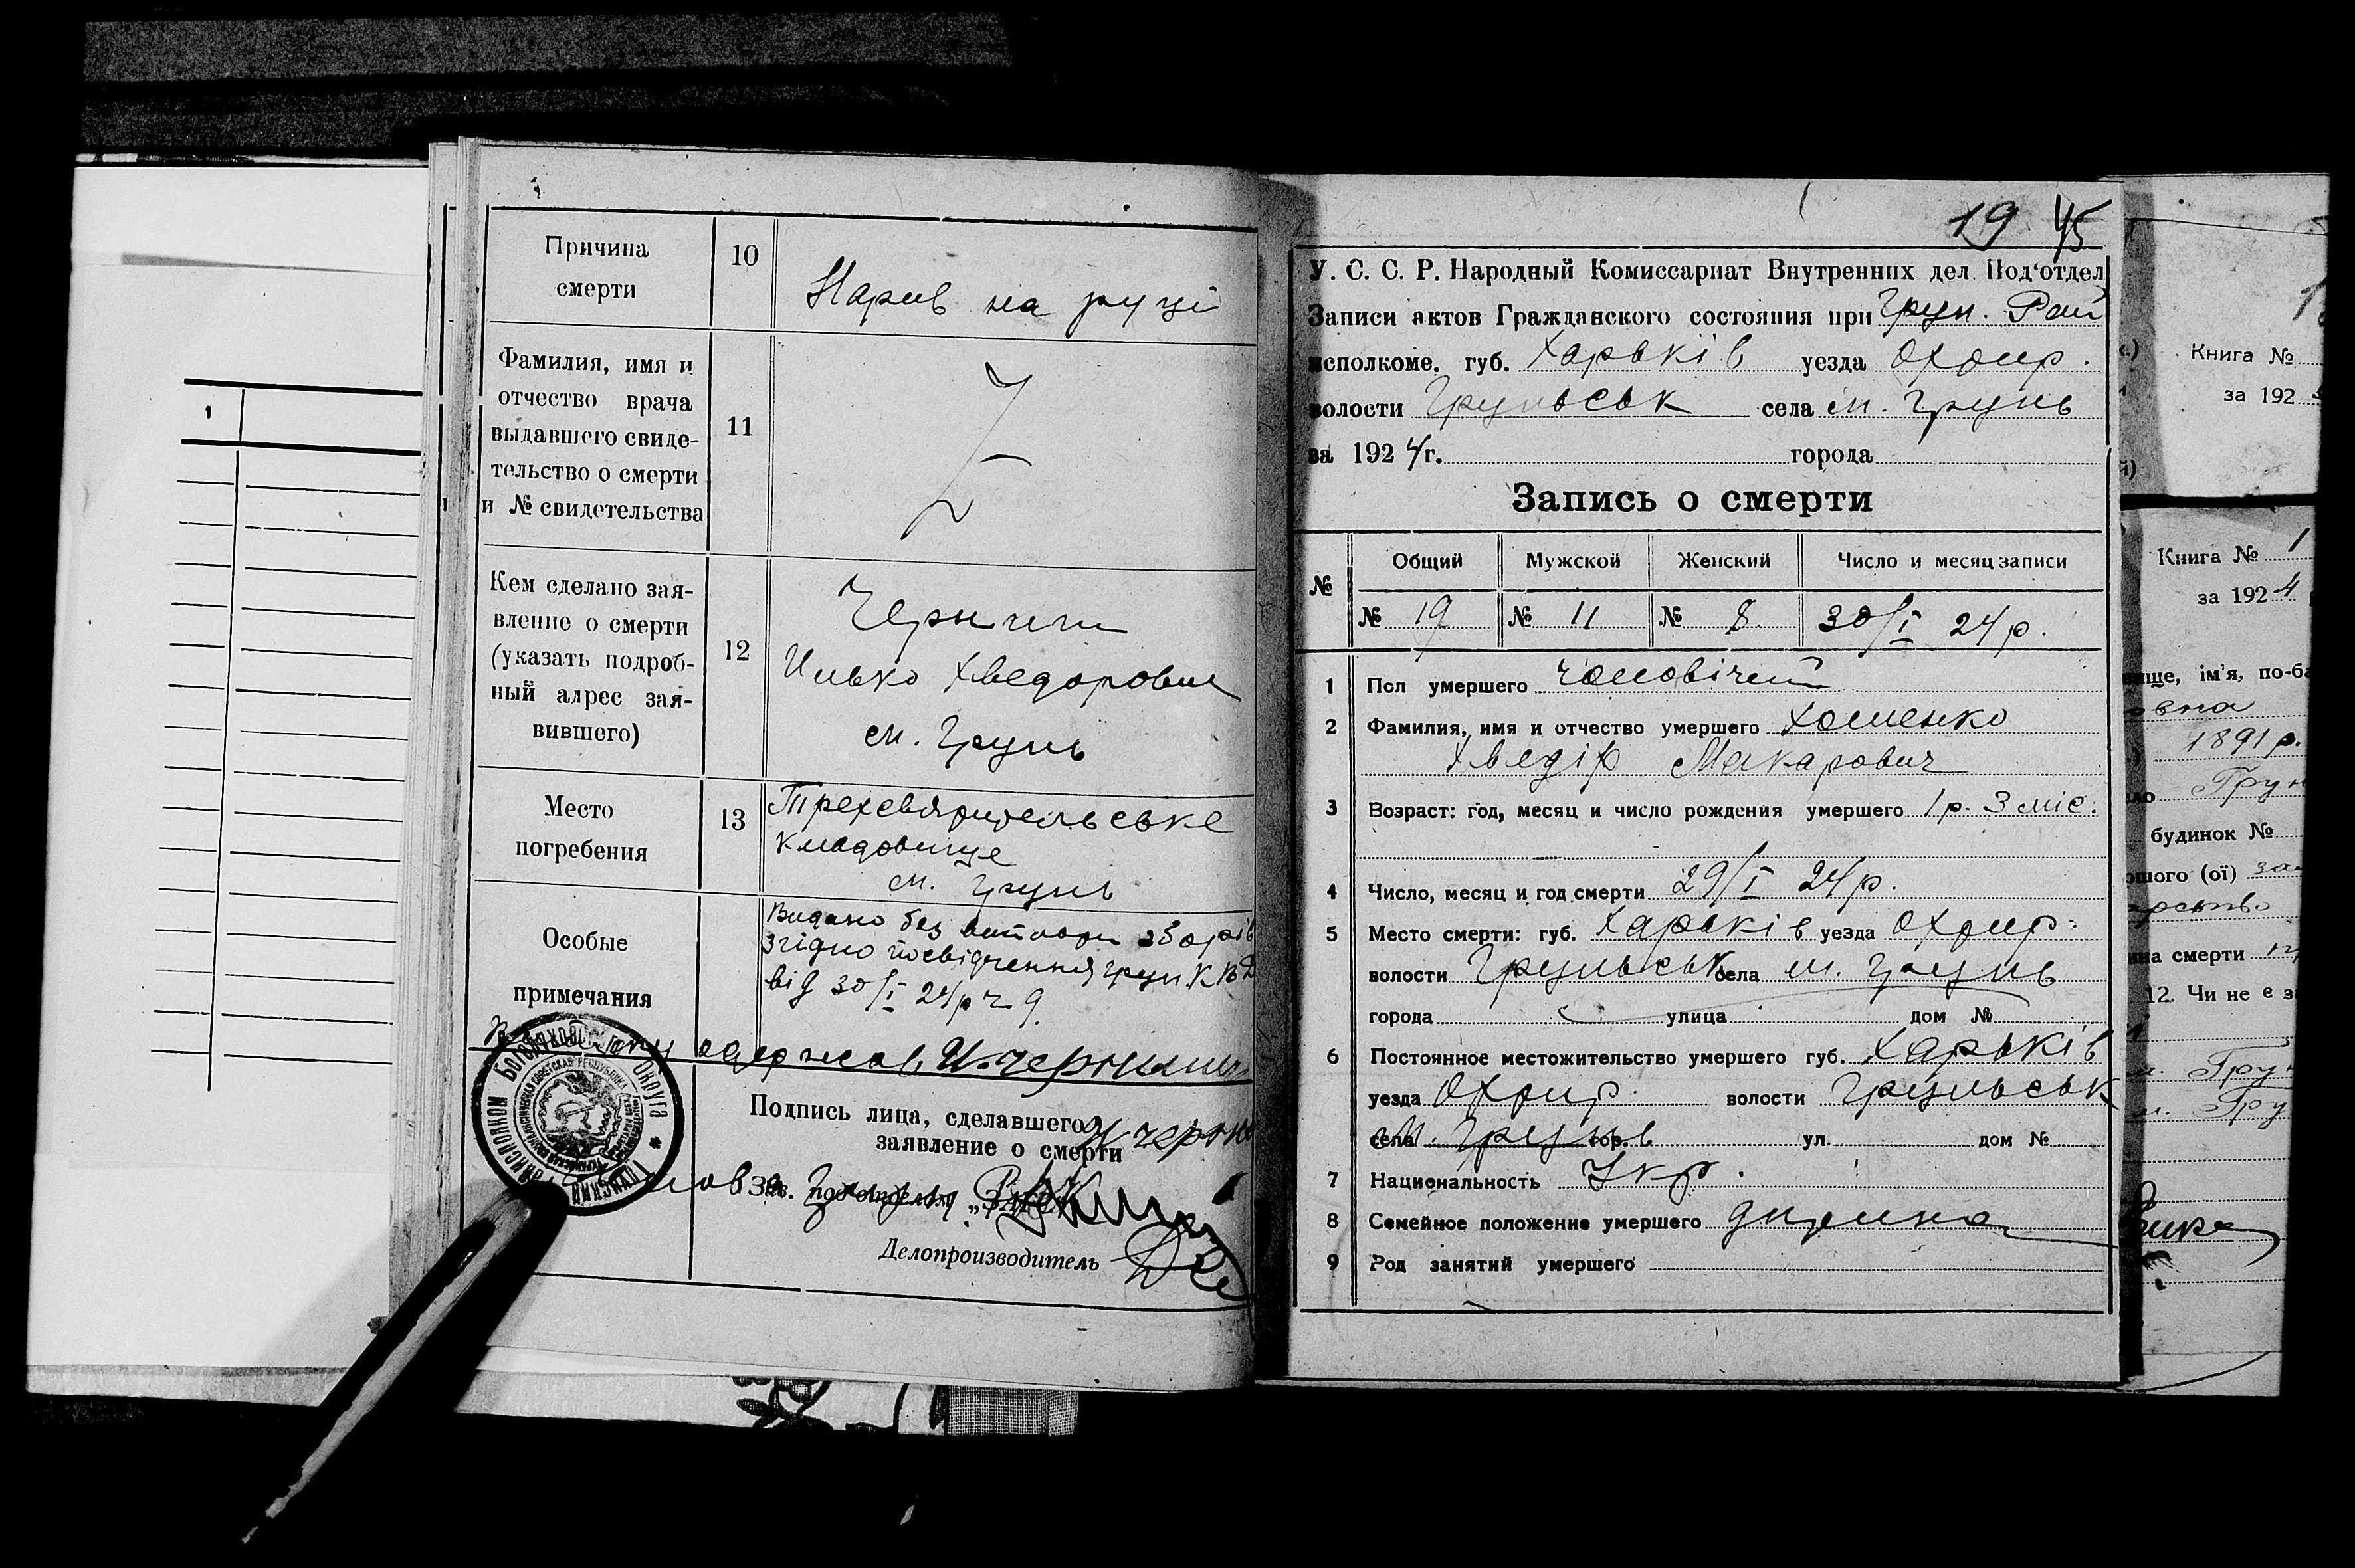 Причина
смерти
10
Нарив на руці
Фамилия, имя и
отчество врача
выдавшего свиде-
тельство о смерти
и № свидетельства
11
Кем сделано зая-
вление о смерти
(указать подроб-
ный адрес зая-
вившего)
12
Илько Хведорович
м. Грунь
Место
погребения
13
Трехсвятительське
кладовище
м. Грунь
Особые
примечания
Видано без оплати зборів
згідно посвідчення Грун. КВД
від 30/I 24 р ч 9
одержав И. Черн
Подпись лица, сделавшего
заявление о смерти И Черн
Зав. подотделом „ЗАГС“
Делопроизводитель
1
19 45
У. С. С. Р. Народный Комиссариат Внутренних дел. Под'отдел
Записи актов Гражданского состояния при Грун. Рай
исполкоме. губ. Харьків уезда Охтир.
волости Груньськ села м. Грунь
за 1924 г. города
Запись о смерти
№ Общий Мужской Женский Число и месяц записи
№ 19 № 11 № 8 30/I 24 р.
1 Пол умершего чоловічий
2 Фамилия, имя и отчество умершего Хоменко
Хведір Макарович
3 Возраст: год, месяц и число рождения умершего 1 р. 3 міс.
4 Число, месяц и год смерти 29/I 24 р.
5 Место смерти: губ. Харьків уезда Охтир.
волости Груньськ села м. Грунь
города улица дом №
6 Постоянное местожительство умершего губ. Харьків
уезда Охтир. волости Груньськ
села м. Грунь гор. ул. дом №
7 Национальность Укр.
8 Семейное положение умершего дитина
9 Род занятий умершего
Книга №
за 192
Книга № 1
за 1924
ім'я, по-ба
овна
1891 р.
Грун
будинок №
смерти
12. Чи не є з
Гру